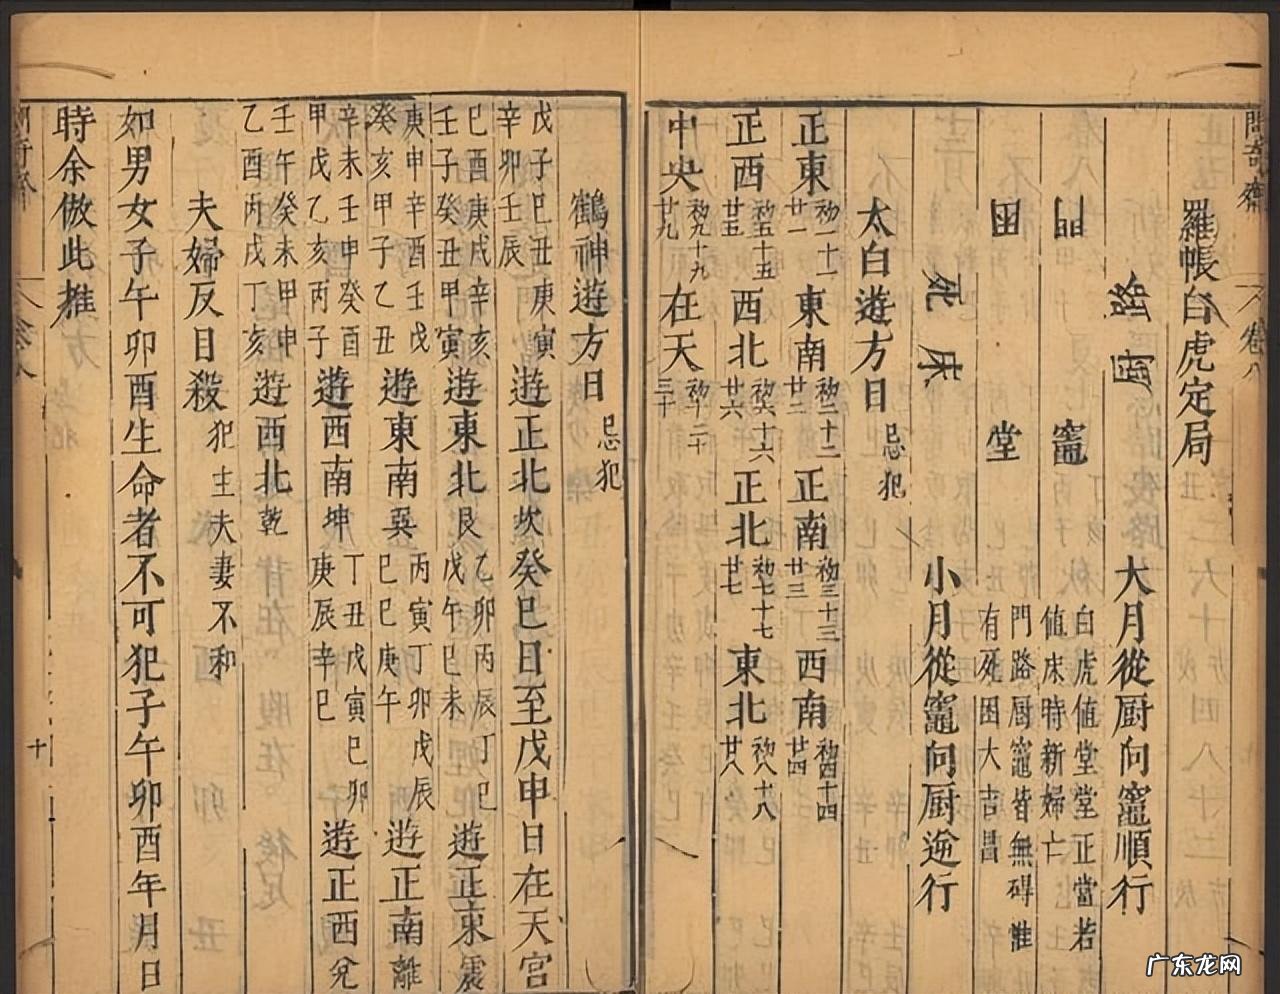 羅帳白虎定局
路 門 大月從厨向竈順行
竈 白虎值堂堂正當若
值床時新婦亡
堂 門路厨竈皆無碍惟
有死困大吉昌
死 床 小月從竈向厨逆行
太白遊方日 忌犯
正東 初一十一 廿一 東南 初二十二 廿二 正南 初三十三 廿三 西南 初四十四 廿四
正西 初五十五 廿五 西北 初六十六 廿六 正北 初七十七 廿七 東北 初八十八 廿八
中央 初九十九 廿九 在天 初十二十 三十
鶴神遊方日 忌犯
戊子巳丑庚寅 辛卯壬辰 遊正北坎癸巳日至戊申日在天宮
巳酉庚戌辛亥 壬子癸丑甲寅 遊東北艮 乙卯丙辰丁巳 戊午巳未 遊正東震
庚申辛酉壬戌 癸亥甲子乙丑 遊東南巽 丙寅丁卯戊辰 巳巳庚午 遊正南離
辛未壬申癸酉 甲戌乙亥丙子 遊西南坤 丁丑戊寅巳卯 庚辰辛巳 遊正西兌
壬午癸未甲申 乙酉丙戌丁亥 遊西北乾
夫婦反目殺 犯主夫妻不和
如男女子午卯酉生命者不可犯子午卯酉年月日
時余倣此推
十
卷八
广东龙网